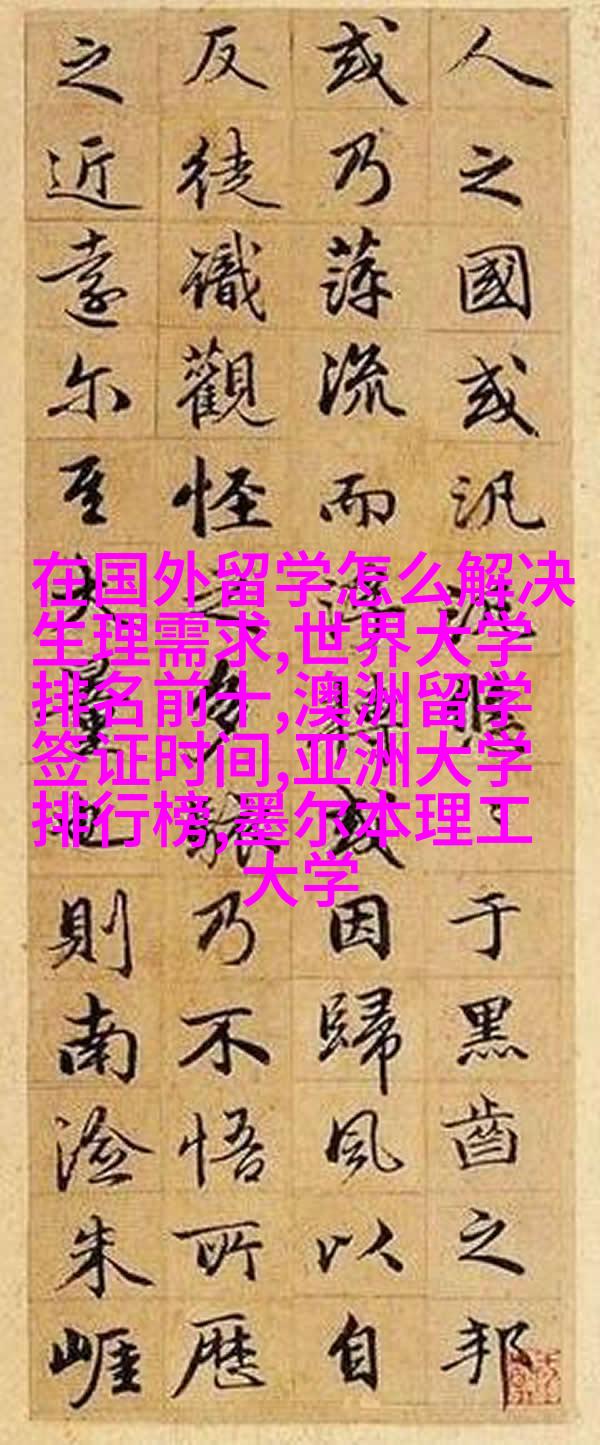 人之國或汎悠于黑齒之邦
或乃萍流而浮轉或因歸風以自
反徒識觀怪之多駭乃不悟所歷
之近遠尔至大量也則南澰朱崕
在国外留学怎么解决
生理需求,世界大学
排名前十,澳洲留学
签证时间,亚洲大学
排行榜,墨尔本理工
大学